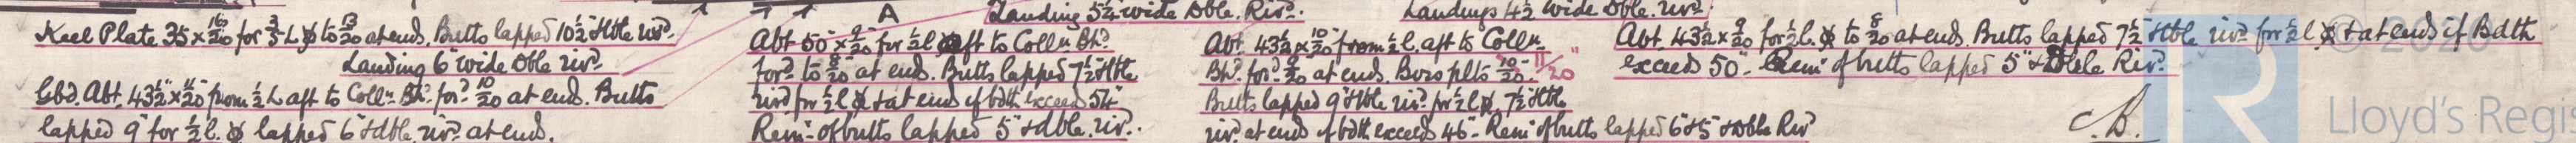 A Landing 5¼" wide Dble. Rivd. Landings 4½ wide Dble. rivd.
Keel Plate 35 x 16/20 for 3/5 L ⦻ to 13/20 at ends. Butts lapped 10½" tble rivd.
Landing 6" wide Dble rivd
Gbd. Abt 43½" x 11/20 from ½ L aft to Colln. Bhd. ford. 10/20 at ends. Butts
lapped 9" for ½ l. ⦻ lapped 6" & dble. rivd. at ends.
Abt 50" x 9/20 for ½ l ⦻ aft to Colln Bhd.
ford to 8/20 at ends. Butts lapped 7½" tble
rivd for ½ l ⦻ & at ends if bdth exceed 54"
Remr. of butts lapped 5" & dble. rivd.
Abt. 43½ x 10/20 from ½ l. aft to Colln.
Bhd. ford. 9/20 at ends. Boss plts 10/20 11/20
Butts lapped 9" tble rivd. for ½ l ⦻. 7½" tble
rivd. at ends if bdth exceeds 46". Remr of butts lapped 6" & 5" & Dble Rivd
Abt. 43½ x 9/20 for ½ l. ⦻ to 8/20 at ends. Butts lapped 7½" tble rivd for ½ l ⦻ & at ends if Bdth
exceeds 50". Remr of butts lapped 5" & Dble Rivd.
© 2020
Lloyd's Regis